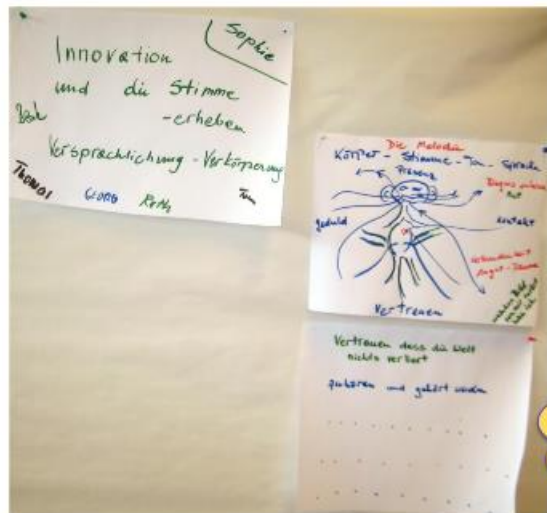 Sophie
Innovation
und die Stimme
-erheben
Versprachlichung - Verkörperung
Thomas
GEORG
Tom
Die Melodie
Körper - Stimme - Ton - Sprache
Präsenz
Mut
geduld
Kontakt
Angst -
Vertrauen
Vertrauen dass die Welt
nichts verliert
und gehört werden